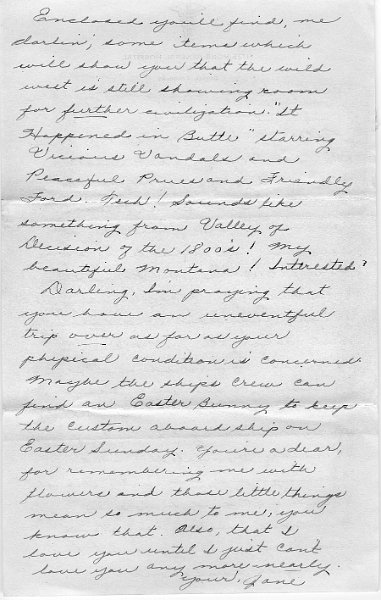 Enclosed you'll find, me
darlin', some items which
will show you that the wild
west is still showing room
for further civilization. "It
Happened in Butte" starring
Vicious Vandals and
Peaceful Prues and Friendly
Ford. Tsch! Sounds like
something from Valley of
Decision of the 1800's! My
beautiful Montana! Interested?
Darling, I'm praying that
you have an uneventful
trip over as far as your
physical condition is concerned.
Maybe the ship's crew can
find an Easter Bunny to keep
the custom aboard ship on
Easter Sunday. You're a dear,
for remembering me with
flowers and those little things
mean so much to me, you
know that. Also, that I
love you until I just can't
love you any more nearly.
Your, Jane